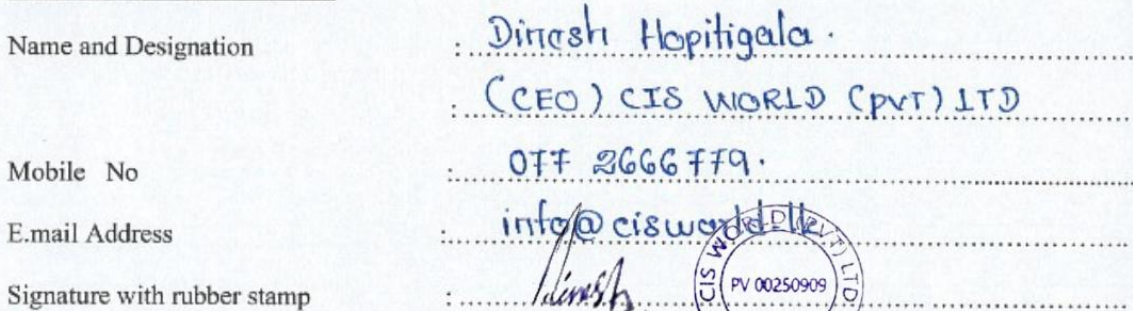 Name and Designation : Dinesh Hapitigala.
: (CEO) CIS WORLD (PVT) LTD
Mobile No : 077 2666779.
E.mail Address : info@cisworld.lk
Signature with rubber stamp : Dinesh
CIS WORLD (PVT) LTD
PV 00250909